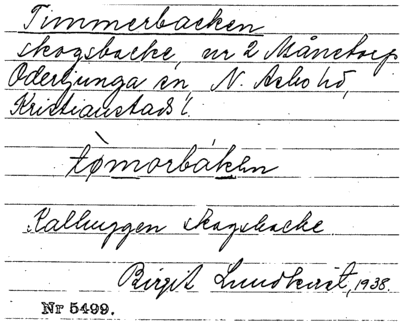 Timmerbacken
skogsbacke, nr 2 Månstorp
Oderljunga sn, N. Åsbo hd,
Kristianstads l.
tømorbákən
Kalhuggen skogsbacke
Birgit Lundkvist, 1938.
Nr 5499.